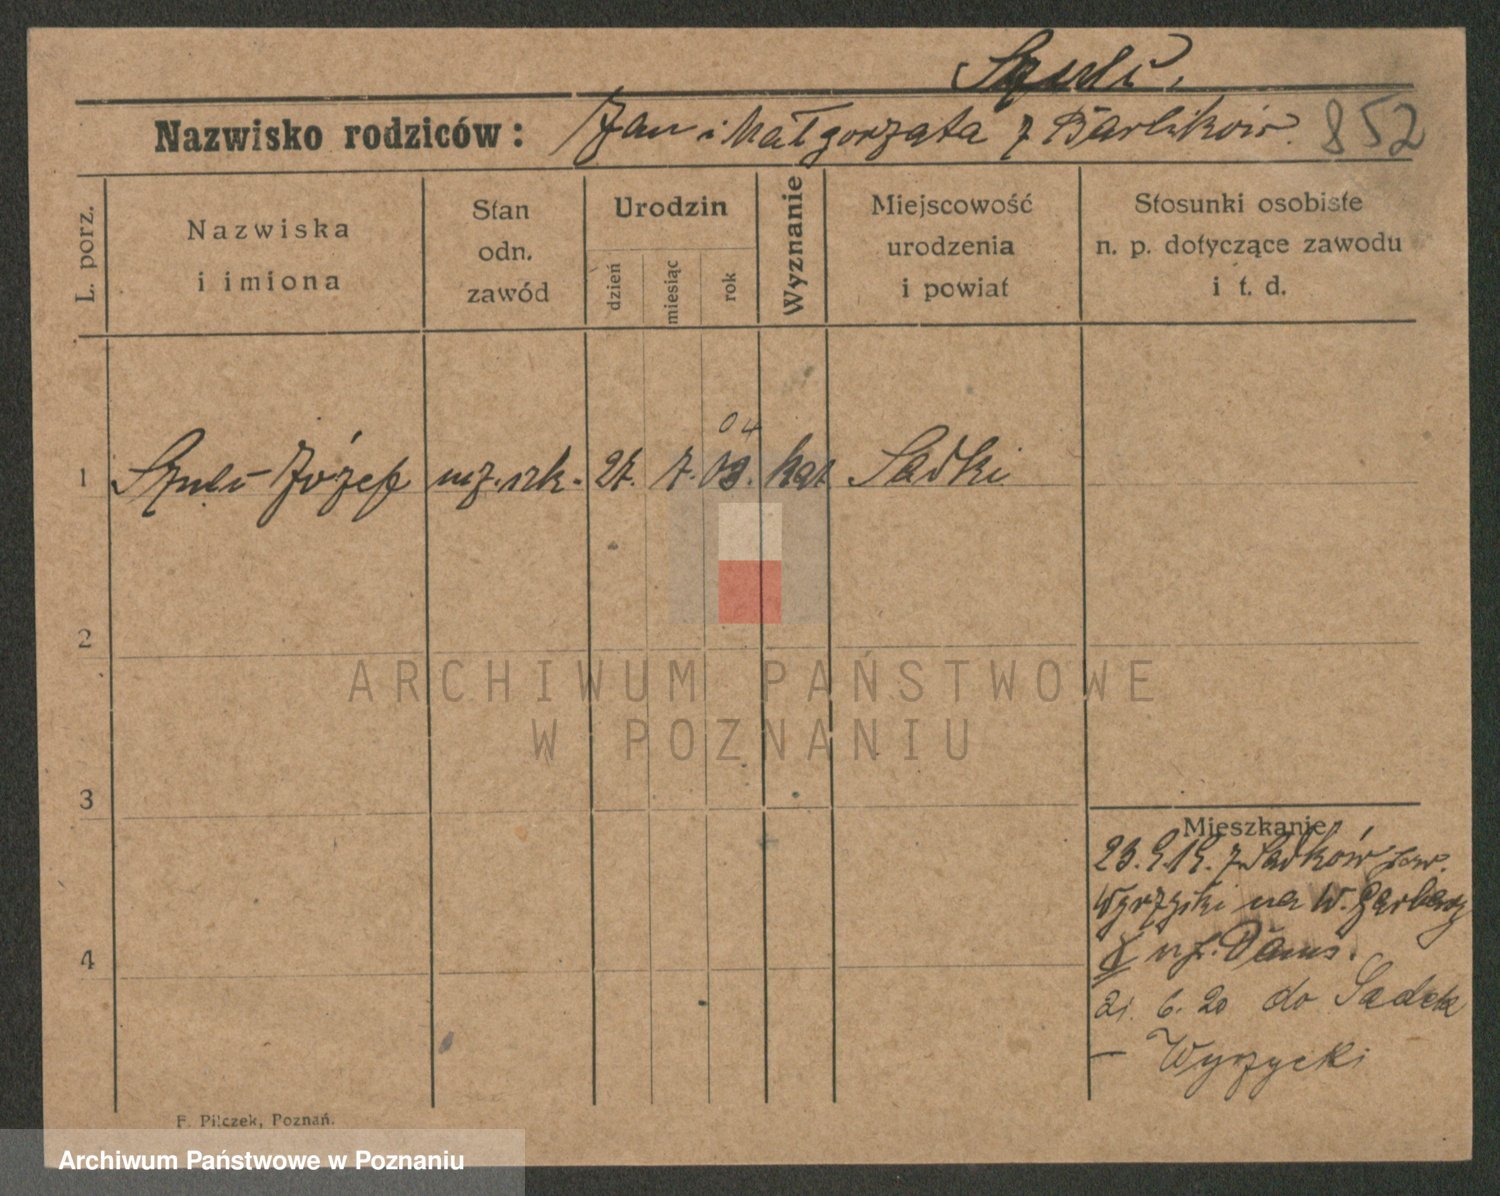 Szulc.
Nazwisko rodziców: Jan i Małgorzata z Barlików. 852
L. porz.
Nazwiska i imiona
Stan odn. zawód
Urodzin
dzień
miesiąc
rok
Wyznanie
Miejscowość urodzenia i powiat
Stosunki osobiste n. p. dotyczące zawodu i t. d.
04
1 Szulc Józef ucz. szk. 27. 7. 03. kat Sadki
2
ARCHIWUM PAŃSTWOWE
W POZNANIU
3
4
Mieszkanie
23.9.19. z Sadków pow.
Wyrzyski na W. Garbary
u f. Dams.
21. 6. 20 do Sadek
— Wyrzycki
F. Pilczek, Poznań.
Archiwum Państwowe w Poznaniu